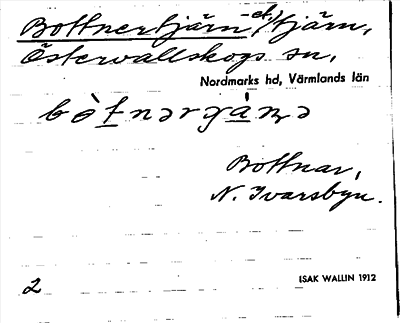 Bottnertjärn, -et, tjärn,
Östervallskogs sn,
Nordmarks hd, Värmlands län
Bottnar,
N. Ivarsbyn.
2
ISAK WALLIN 1912